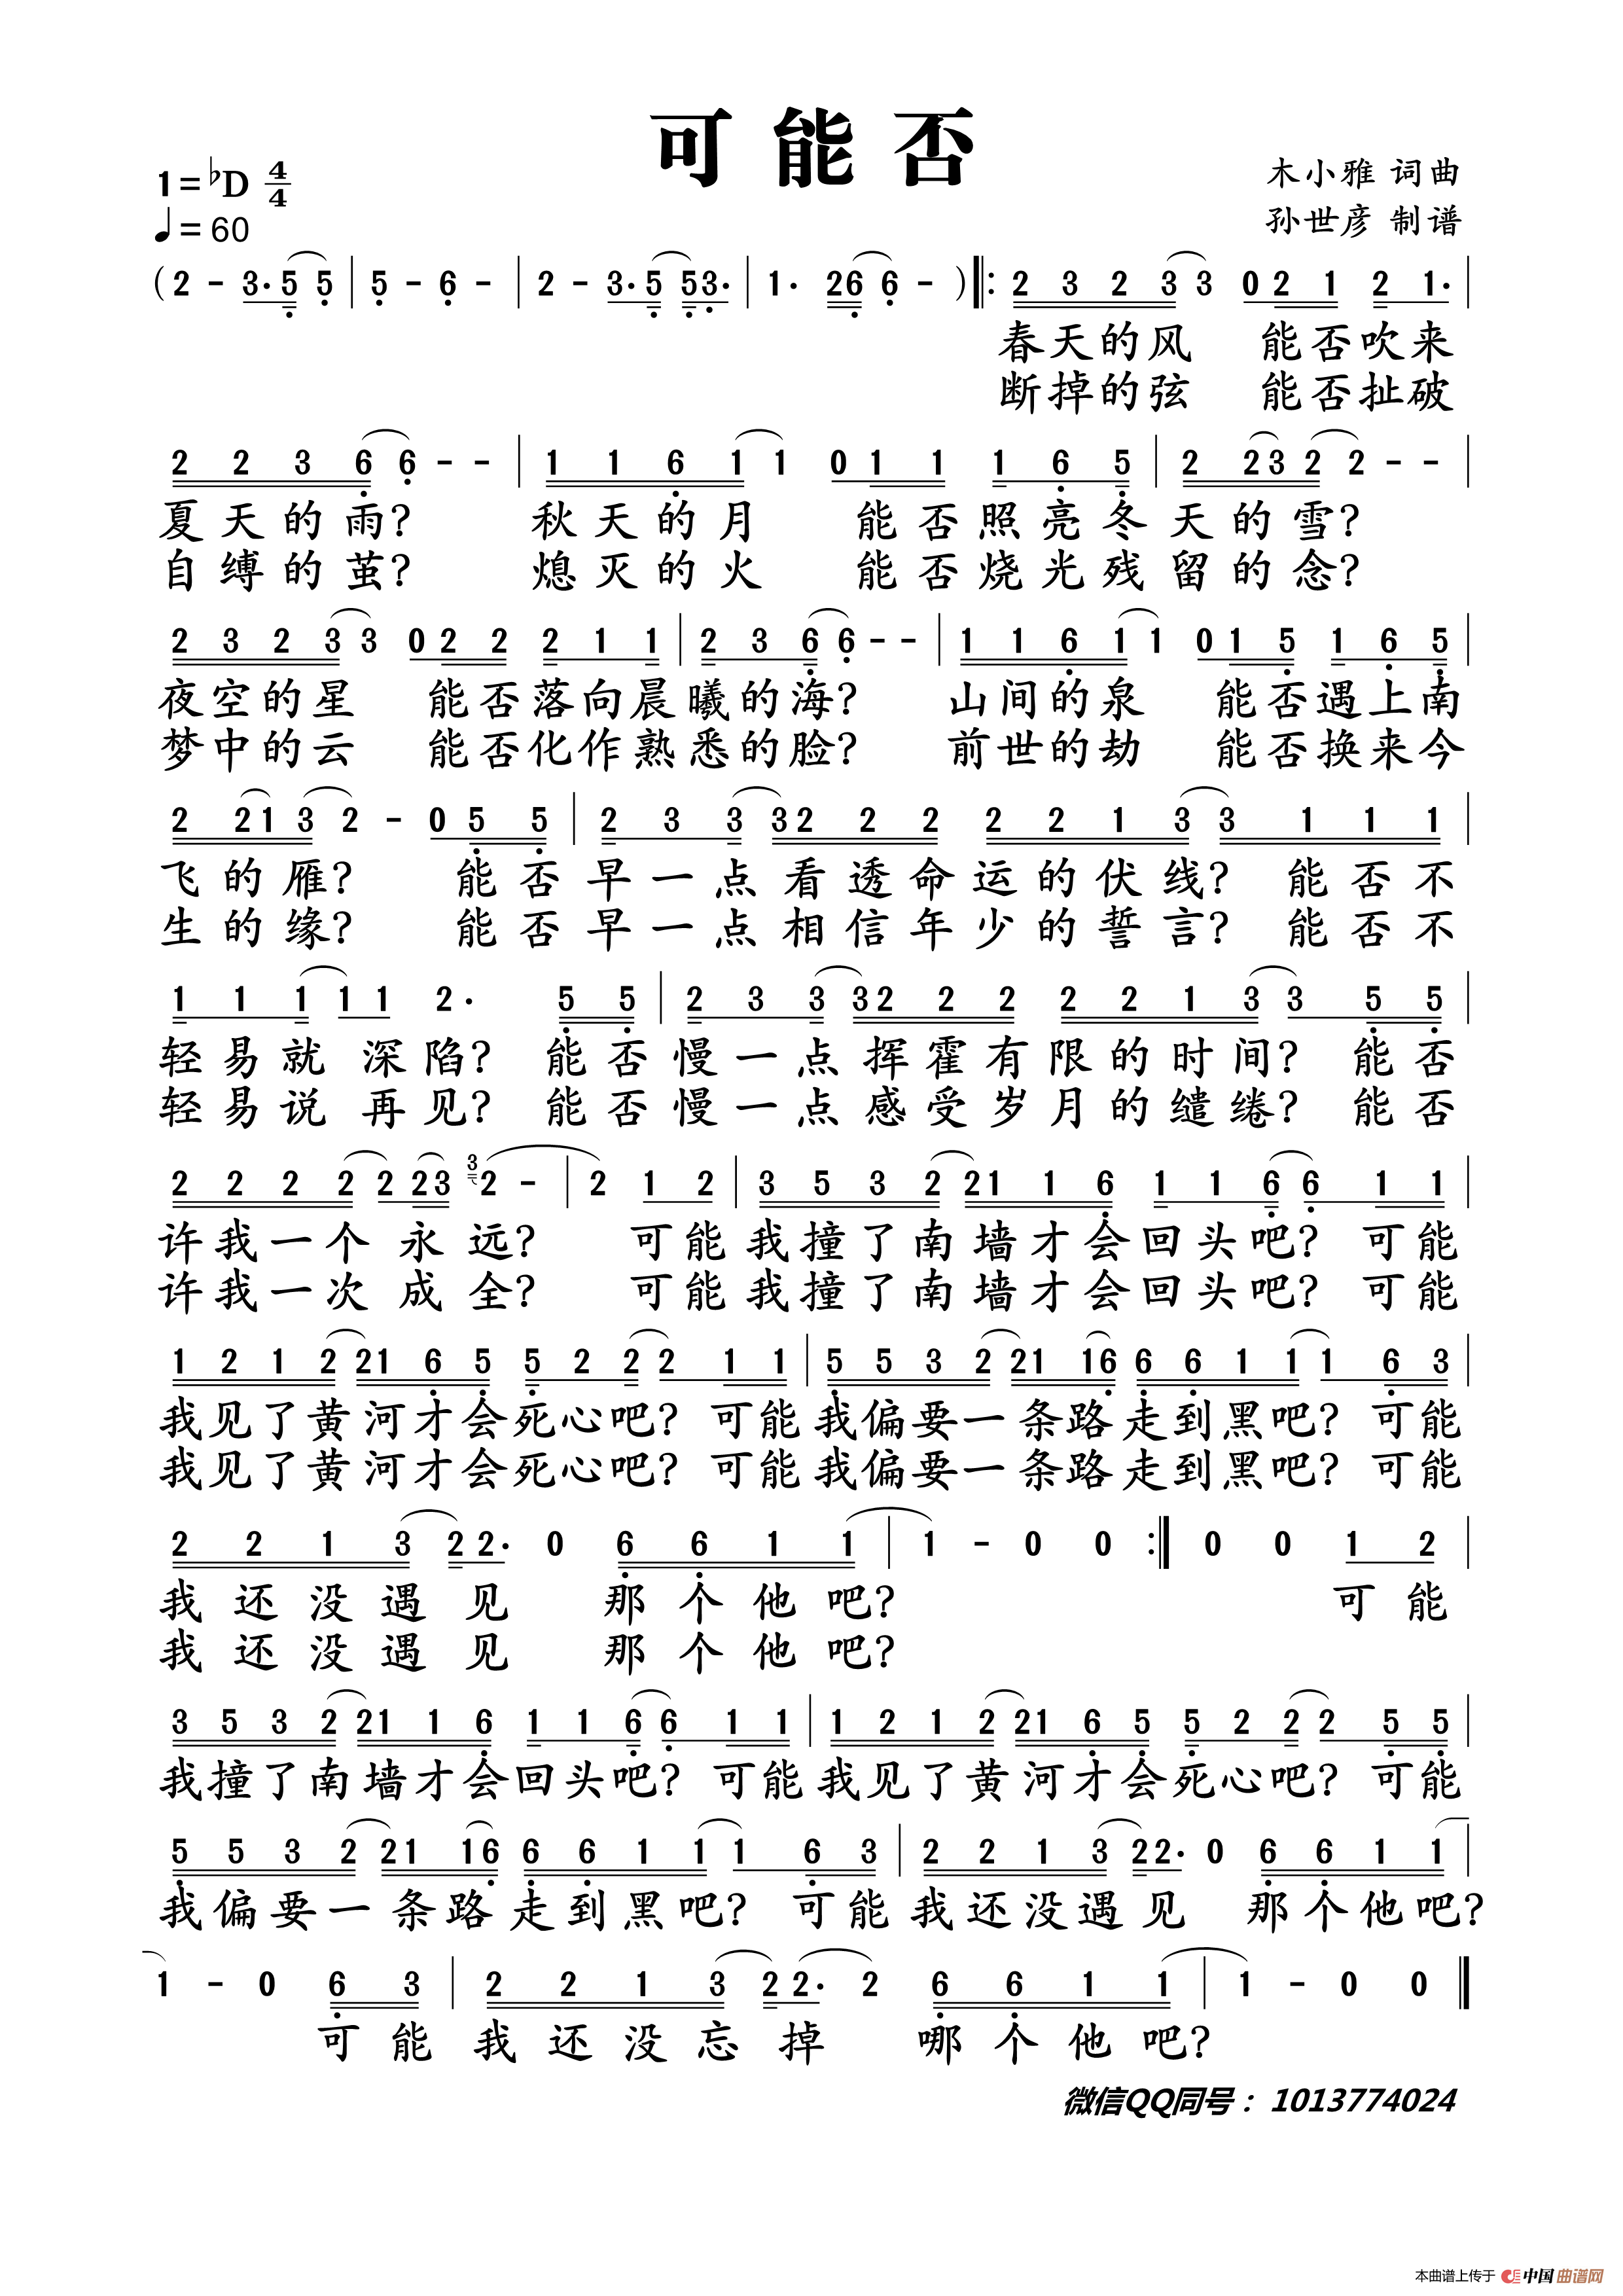 可能否
1=♭D 4/4
♩=60
木小雅 词曲
孙世彦 制谱
( 2 - 3. 5 5 | 5 - 6 - | 2 - 3. 5 5 3. | 1. 2 6 6 - ) ‖: 2 3 2 3 3 0 2 1 2 1. |
春天的风 能否吹来
断掉的弦 能否扯破
2 2 3 6 6 - - | 1 1 6 1 1 0 1 1 1 6 5 | 2 2 3 2 2 - - |
夏天的雨? 秋天的月 能否照亮冬天的雪?
自缚的茧? 熄灭的火 能否烧光残留的念?
2 3 2 3 3 0 2 2 2 1 1 | 2 3 6 6 - - | 1 1 6 1 1 0 1 5 1 6 5 |
夜空的星 能否落向晨曦的海? 山间的泉 能否遇上南
梦中的云 能否化作熟悉的脸? 前世的劫 能否换来今
2 2 1 3 2 - 0 5 5 | 2 3 3 3 2 2 2 2 2 1 3 3 1 1 1 |
飞的雁? 能否早一点看透命运的伏线? 能否不
生的缘? 能否早一点相信年少的誓言? 能否不
1 1 1 1 1 2. 5 5 | 2 3 3 3 2 2 2 2 2 1 3 3 5 5 |
轻易就深陷? 能否慢一点挥霍有限的时间? 能否
轻易说再见? 能否慢一点感受岁月的缱绻? 能否
2 2 2 2 2 2 3 3 2 - | 2 1 2 | 3 5 3 2 2 1 1 6 1 1 6 6 1 1 |
许我一个永远? 可能我撞了南墙才会回头吧? 可能
许我一次成全? 可能我撞了南墙才会回头吧? 可能
1 2 1 2 2 1 6 5 5 2 2 2 1 1 | 5 5 3 2 2 1 1 6 6 6 1 1 1 6 3 |
我见了黄河才会死心吧? 可能我偏要一条路走到黑吧? 可能
我见了黄河才会死心吧? 可能我偏要一条路走到黑吧? 可能
2 2 1 3 2 2. 0 6 6 1 1 | 1 - 0 0 :‖ 0 0 1 2 |
我还没遇见 那个他吧? 可能
我还没遇见 那个他吧?
3 5 3 2 2 1 1 6 1 1 6 6 1 1 | 1 2 1 2 2 1 6 5 5 2 2 2 5 5 |
我撞了南墙才会回头吧? 可能我见了黄河才会死心吧? 可能
5 5 3 2 2 1 1 6 6 6 1 1 1 6 3 | 2 2 1 3 2 2. 0 6 6 1 1 |
我偏要一条路走到黑吧? 可能我还没遇见 那个他吧?
1 - 0 6 3 | 2 2 1 3 2 2. 2 6 6 1 1 | 1 - 0 0 ‖
可能我还没忘掉 哪个他吧?
微信QQ同号：1013774024
本曲谱上传于 中国曲谱网